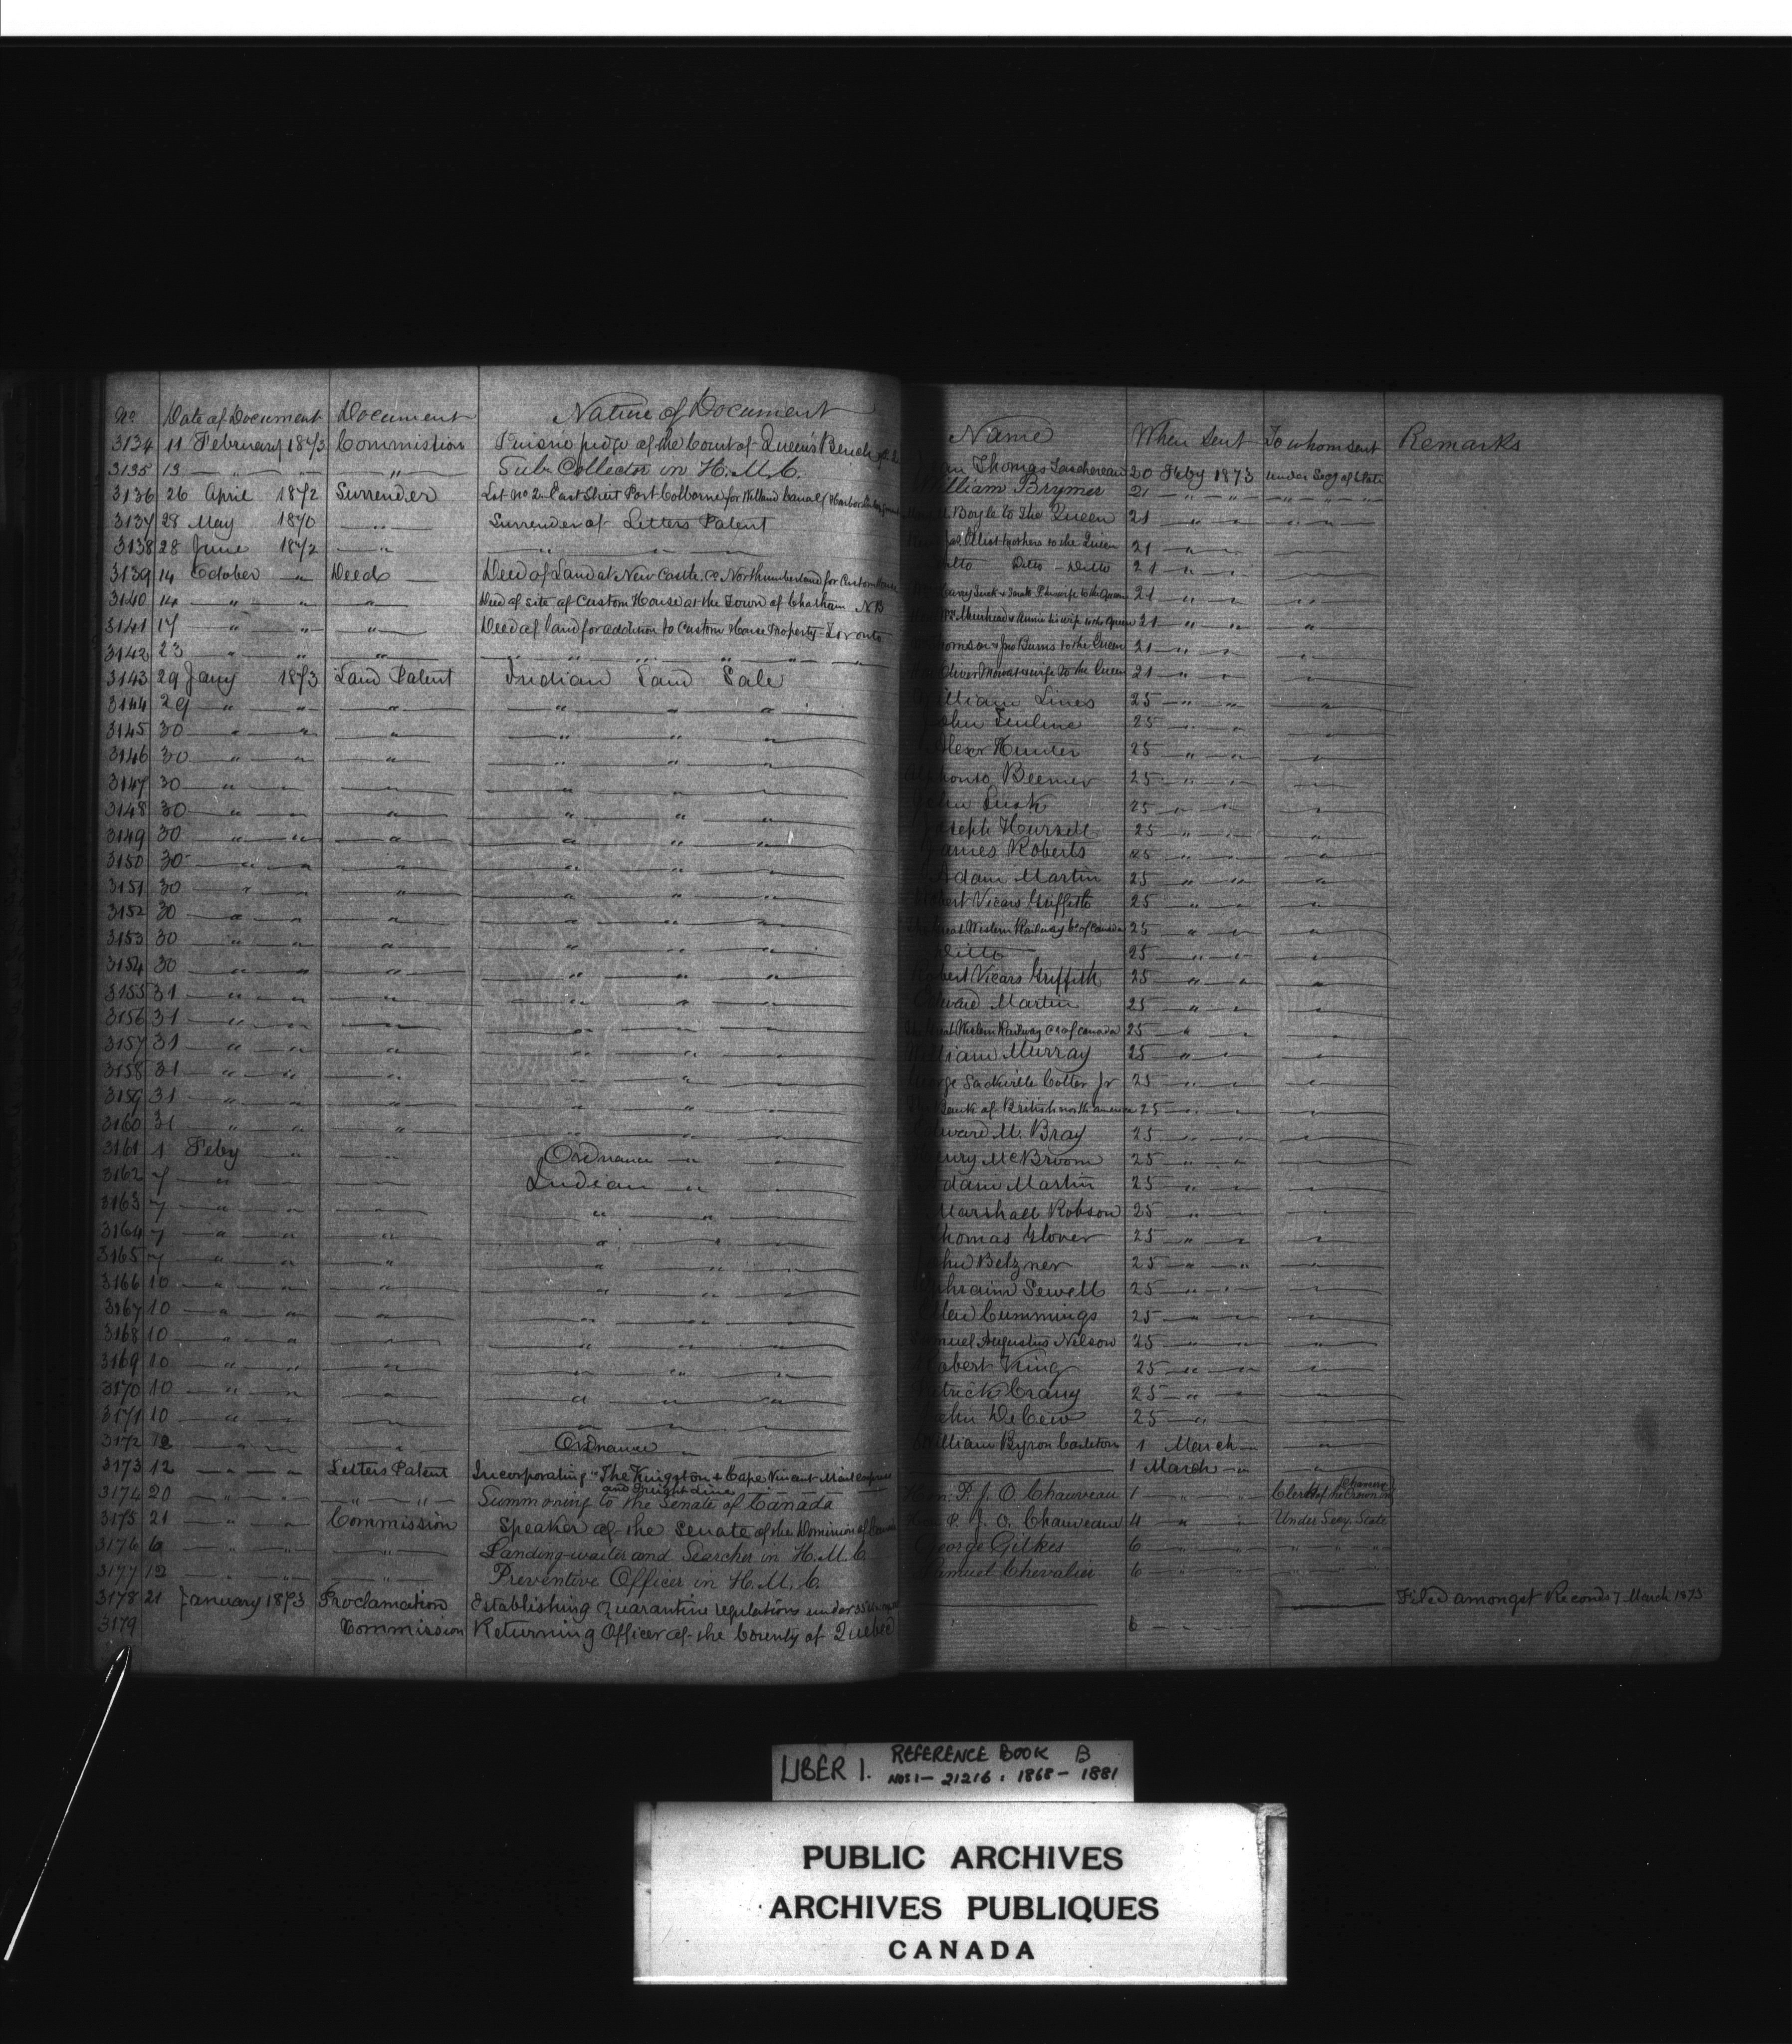 No Date of Document Document Nature of Document Name When Sent To whom sent Remarks
3134 11 February 1873 Commission Puisne judge of the Court of Queen's Bench Thomas Taschereau 20 Feby 1873 under Secy of State
3135 13 " " " Sub. Collector in H.M.C. William Brymer 21 " " " " " "
3136 26 April 1872 Surrender Lot No 2 East Street Port Colborne for Welland Canal Boyle to the Queen 21 " " " "
3137 28 May 1870 " Surrender of Letters Patent Elliot to the Queen 21 " "
3138 28 June 1872 " " " " Ditto Ditto 21 " "
3139 14 October " Deed Deed of Land at New Castle Co Northumberland for Custom House to the Queen 21 " " "
3140 14 " " " Deed of site of Custom House at the Town of Chatham N B Muirhead & Annie his wife to the Queen 21 " " "
3141 17 " " " Deed of land for addition to Custom House Property Toronto Jno Burns to the Queen 21 " " "
3142 23 " " " " " " " " Oliver Mowat & wife to the Queen 21 " " "
3143 29 Jany 1873 Land Patent Indian Land Sale William Lines 25 " " "
3144 29 " " " " " " John 25 " " "
3145 30 " " " " " " Alexr Hunter 25 " " "
3146 30 " " " " " " Alphonso Beemer 25 " " "
3147 30 " " " " " " John Lusk 25 " " "
3148 30 " " " " " " Joseph Hursell 25 " " "
3149 30 " " " " " " James Roberts 25 " " "
3150 30 " " " " " " Adam Martin 25 " " "
3151 30 " " " " " " Robert Vicars Griffith 25 " " "
3152 30 " " " " " " The Great Western Railway Co of Canada 25 " " "
3153 30 " " " " " " Ditto 25 " " "
3154 30 " " " " " " Robert Vicars Griffith 25 " " "
3155 31 " " " " " " Edward Martin 25 " " "
3156 31 " " " " " " The Great Western Railway Co of Canada 25 " " "
3157 31 " " " " " " William Murray 25 " " "
3158 31 " " " " " " George Sackville Cotter Jr 25 " " "
3159 31 " " " " " " The Bank of British north america 25 " " "
3160 31 " " " " " " Edward M. Bray 25 " " "
3161 1 Feby " " Ordnance " " Henry McBroom 25 " " "
3162 7 " " " Indian " " Adam Martin 25 " " "
3163 7 " " " " " " Marshall Robson 25 " " "
3164 7 " " " " " " Thomas Glover 25 " " "
3165 7 " " " " " " John Belzner 25 " " "
3166 10 " " " " " " Ephraim Sewell 25 " " "
3167 10 " " " " " " Cummings 25 " " "
3168 10 " " " " " " Samuel Augustus Nelson 25 " " "
3169 10 " " " " " " Robert King 25 " " "
3170 10 " " " " " " Patrick 25 " " "
3171 10 " " " " " " John DeCew 25 " "
3172 12 " " " Ordnance " William Byron Carleton 1 March "
3173 12 " " Letters Patent Incorporating "The Kingston & Cape Vincent Mail express 1 March " "
and Freight Line
3174 20 " " " " Summoning to the Senate of Canada Hon. P. J. O Chauveau 1 " " Clerk of the Crown in Chancery
3175 21 " " Commission Speaker of the Senate of the Dominion of Canada Hon P. J. O. Chauveau 4 " " Under Secy. State
3176 6 " " " Landing-waiter and Searcher in H.M.C. George Gilkes 6 " " " " "
3177 12 " " " Preventive Officer in H.M.C. Samuel Chevalier 6 " " " " "
3178 21 January 1873 Proclamation Establishing Quarantine regulations under Filed amongst Records 7 March 1873
3179 Commission Returning Officer of the County of Quebec 6
LIBER 1. REFERENCE BOOK B
NOS 1 - 21216 : 1868 - 1881
PUBLIC ARCHIVES
ARCHIVES PUBLIQUES
CANADA